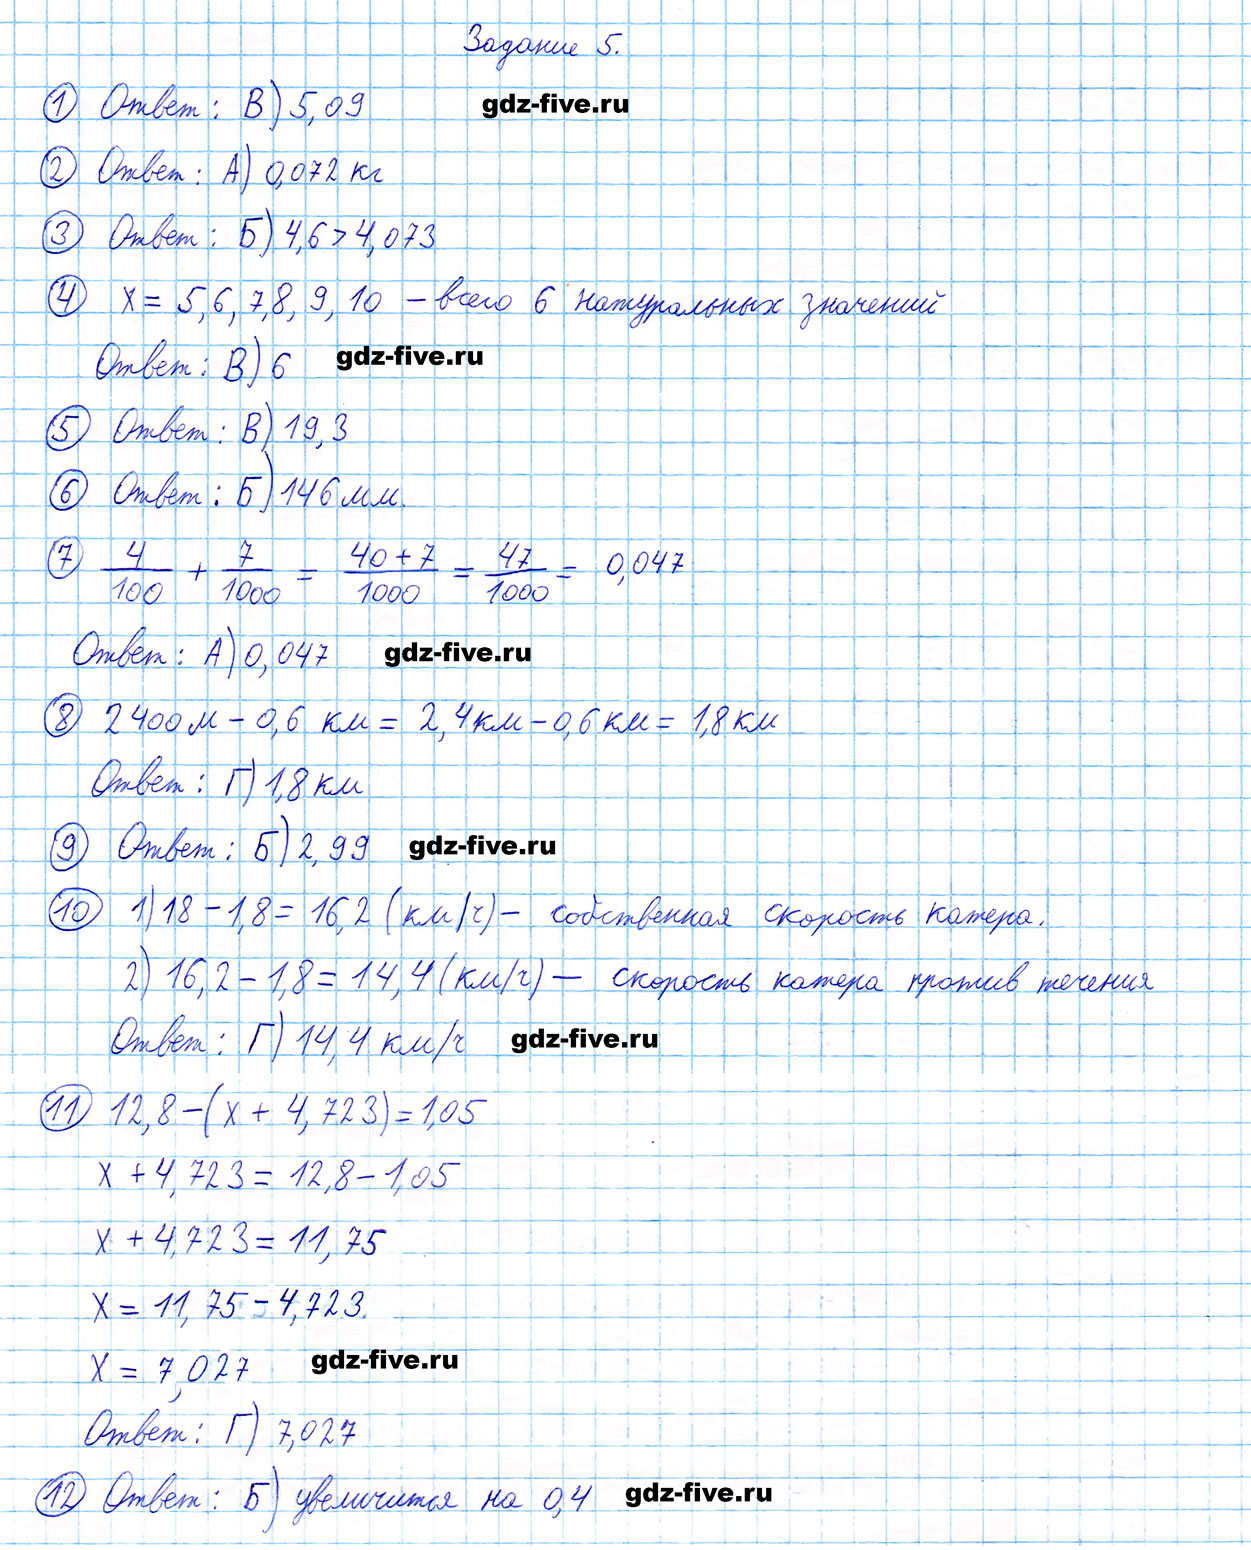 Задание 5.
① Ответ: В) 5,09 gdz-five.ru
② Ответ: А) 0,072 кг
③ Ответ: Б) 4,6 > 4,073
④ x = 5, 6, 7, 8, 9, 10 – всего 6 натуральных значений
Ответ: В) 6 gdz-five.ru
⑤ Ответ: В) 19,3
⑥ Ответ: Б) 146 мм.
⑦ 4/100 + 7/1000 = 40+7/1000 = 47/1000 = 0,047
Ответ: А) 0,047 gdz-five.ru
⑧ 2400 м – 0,6 км = 2,4 км – 0,6 км = 1,8 км
Ответ: Г) 1,8 км
⑨ Ответ: Б) 2,99 gdz-five.ru
⑩ 1) 18 – 1,8 = 16,2 (км/ч) – собственная скорость катера.
2) 16,2 – 1,8 = 14,4 (км/ч) — скорость катера против течения
Ответ: Г) 14,4 км/ч gdz-five.ru
⑪ 12,8 – (x + 4,723) = 1,05
x + 4,723 = 12,8 – 1,05
x + 4,723 = 11,75
x = 11,75 – 4,723.
x = 7,027 gdz-five.ru
Ответ: Г) 7,027
⑫ Ответ: Б) увеличится на 0,4 gdz-five.ru